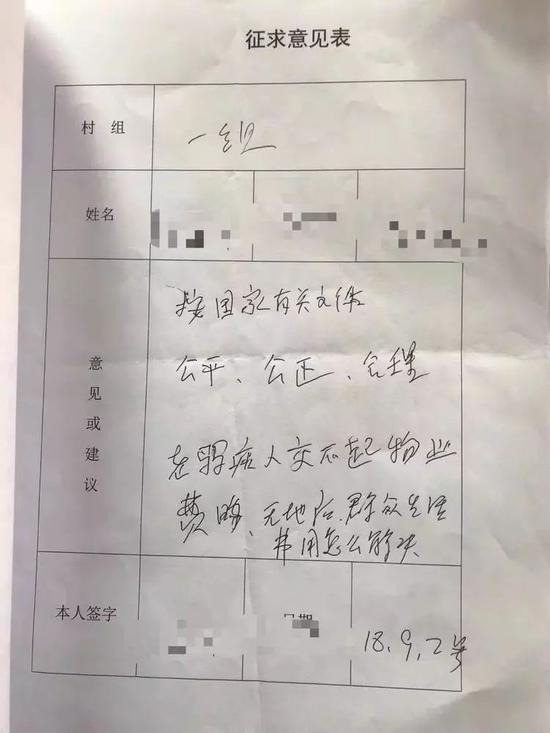 征求意见表
村 组
一组
姓名
意见或建议
按国家有关文件
公平、公正、合理
老弱病人交不起物业
费 无地后群众生活
费用怎么解决
本人签字
日期
18.9.2号